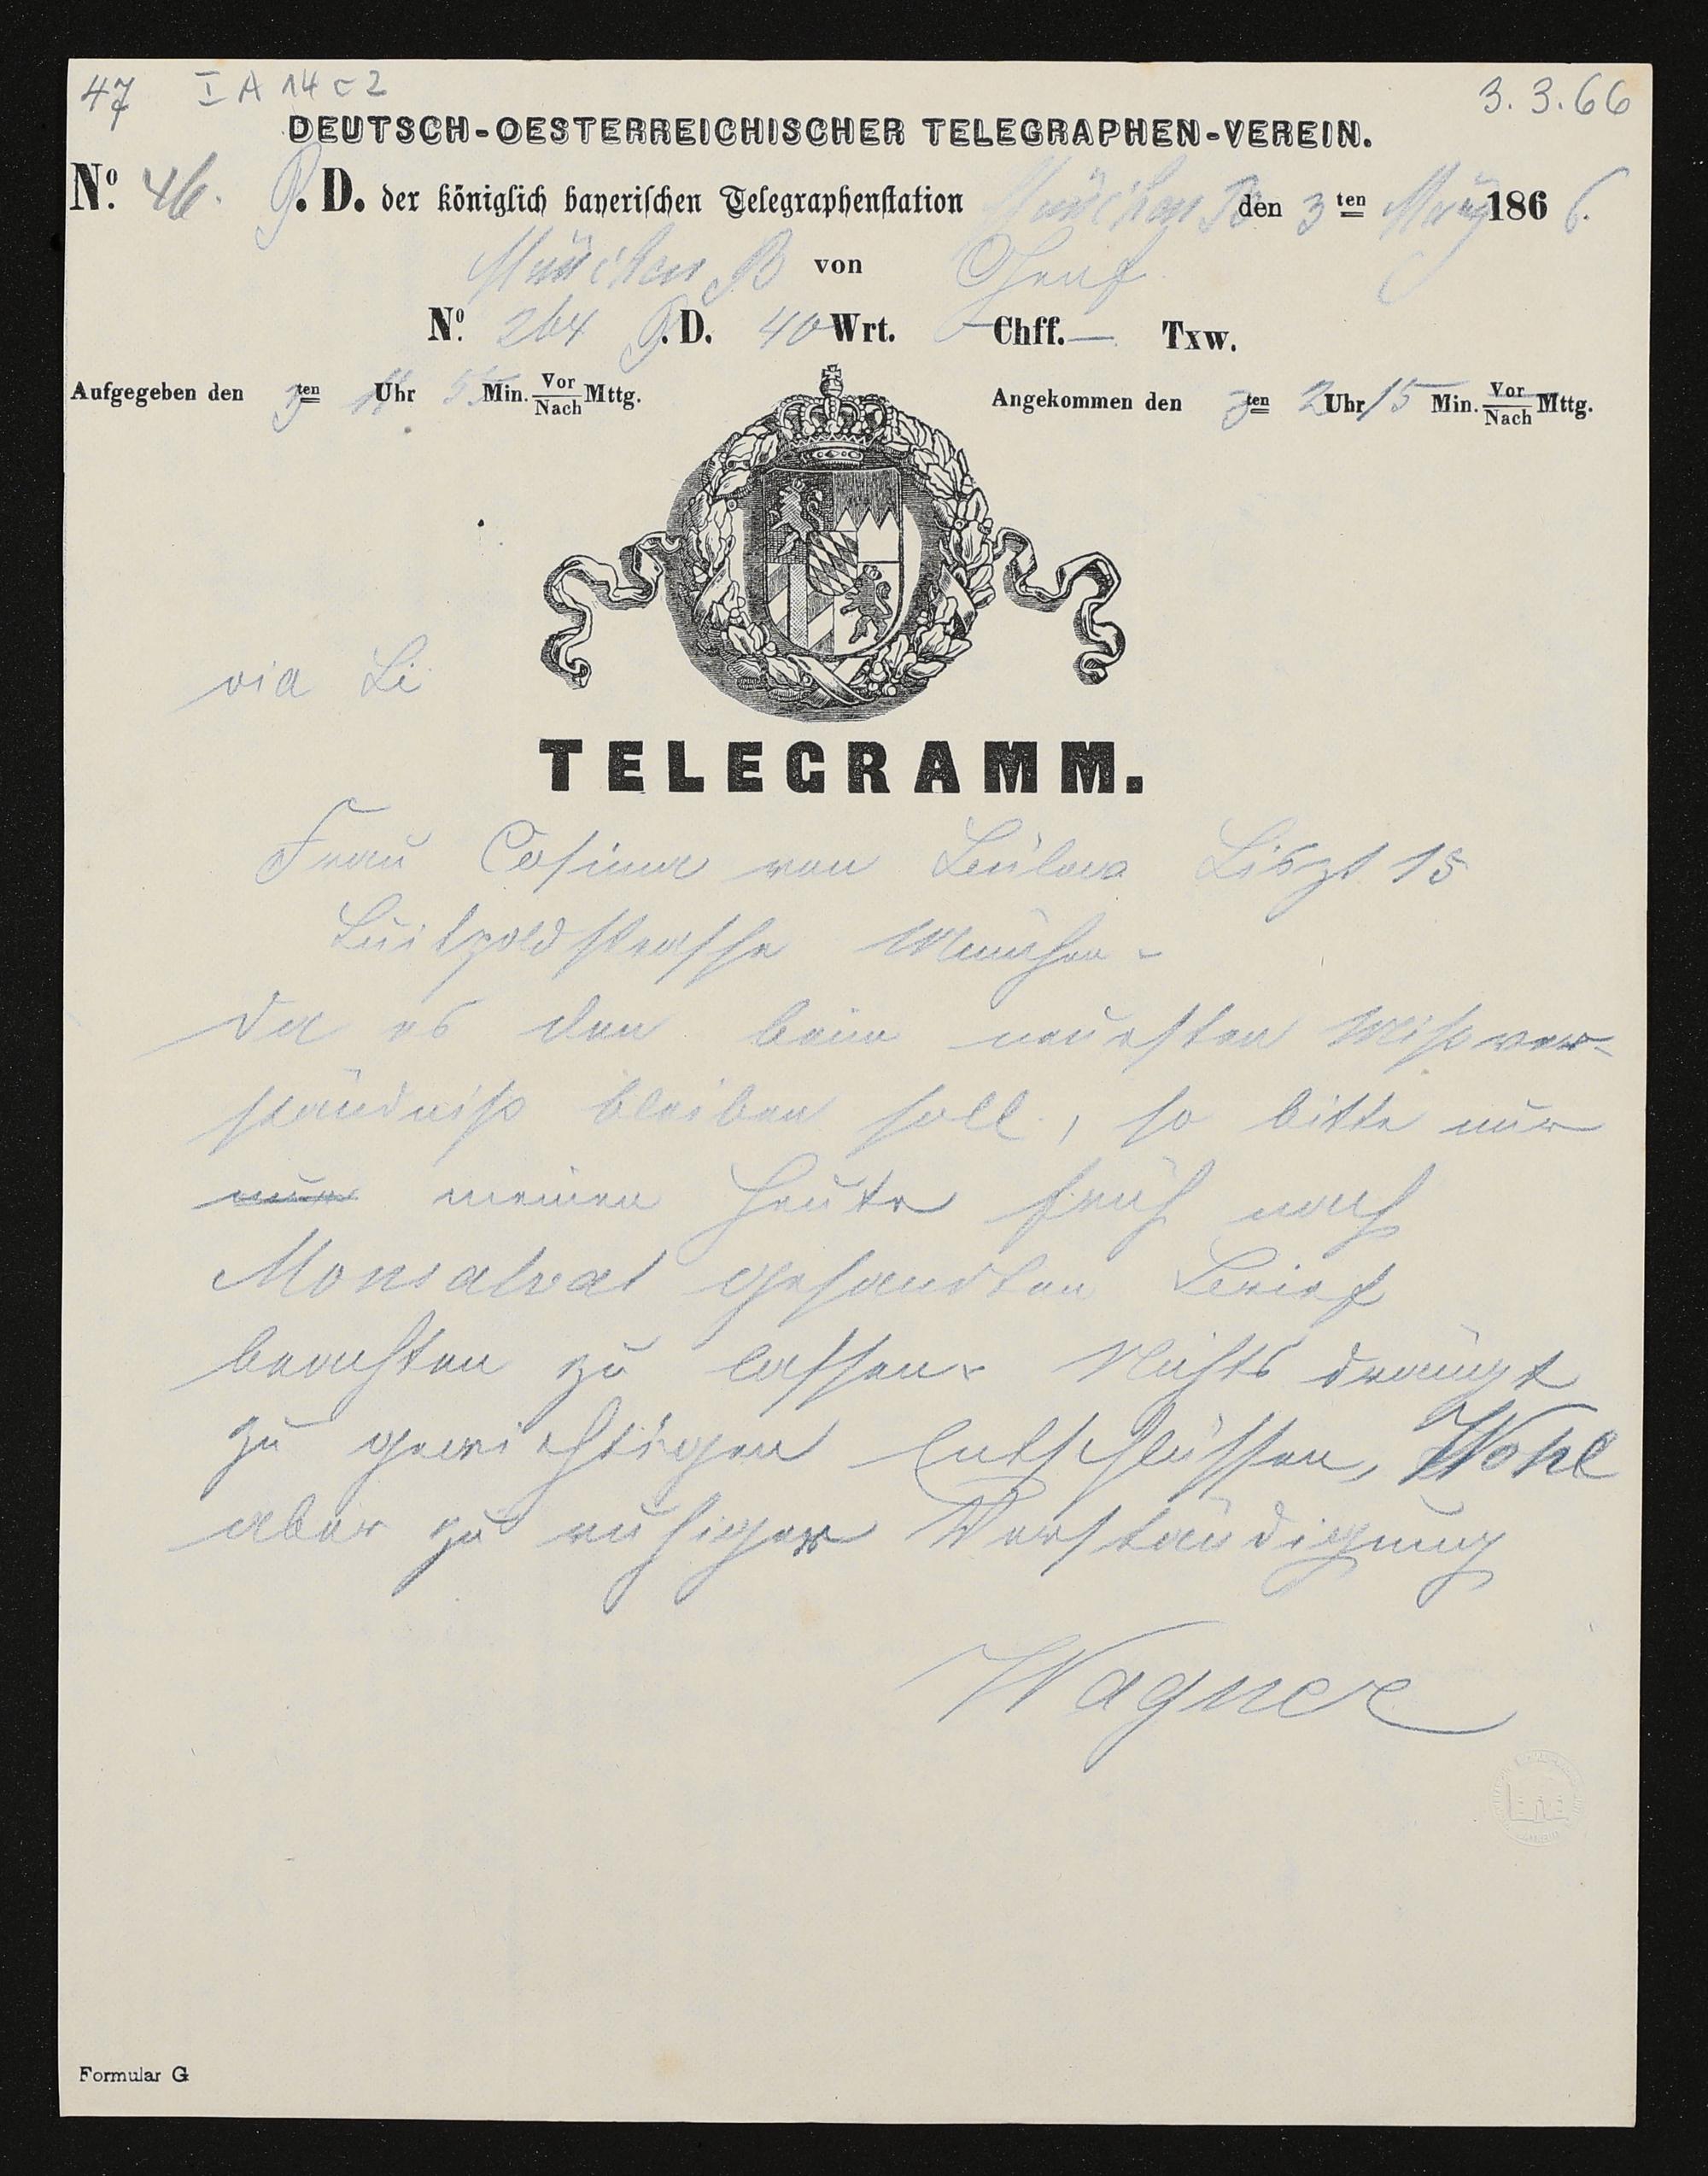 47 I A 14 c 2 3.3.66
DEUTSCH-OESTERREICHISCHER TELEGRAPHEN-VEREIN.
No. 46. P. D. der königlich bayerischen Telegraphenstation München B den 3 ten März 1866.
München B von Genf
No. 264 P.D. 40 Wrt. — Chff. — Txw.
Aufgegeben den 3 ten Uhr 55 Min. Vor/Nach Mttg. Angekommen den 3 ten 2 Uhr 15 Min. Vor/Nach Mttg.
via Li
TELEGRAMM.
Frau Cosima von Bülow Liszt 15
Luitpoldstrasse München -
Da es den beim neuesten Mißver-
ständniß bleiben soll, so bitte nur
nur meinen heute früh nach
Monsalvat gesandten Brief
beachten zu lassen. Nichts drängt
zu gewichtigen Entschlüssen, Wohl
aber zu ruhiger Verständigung
Wagner
Formular G